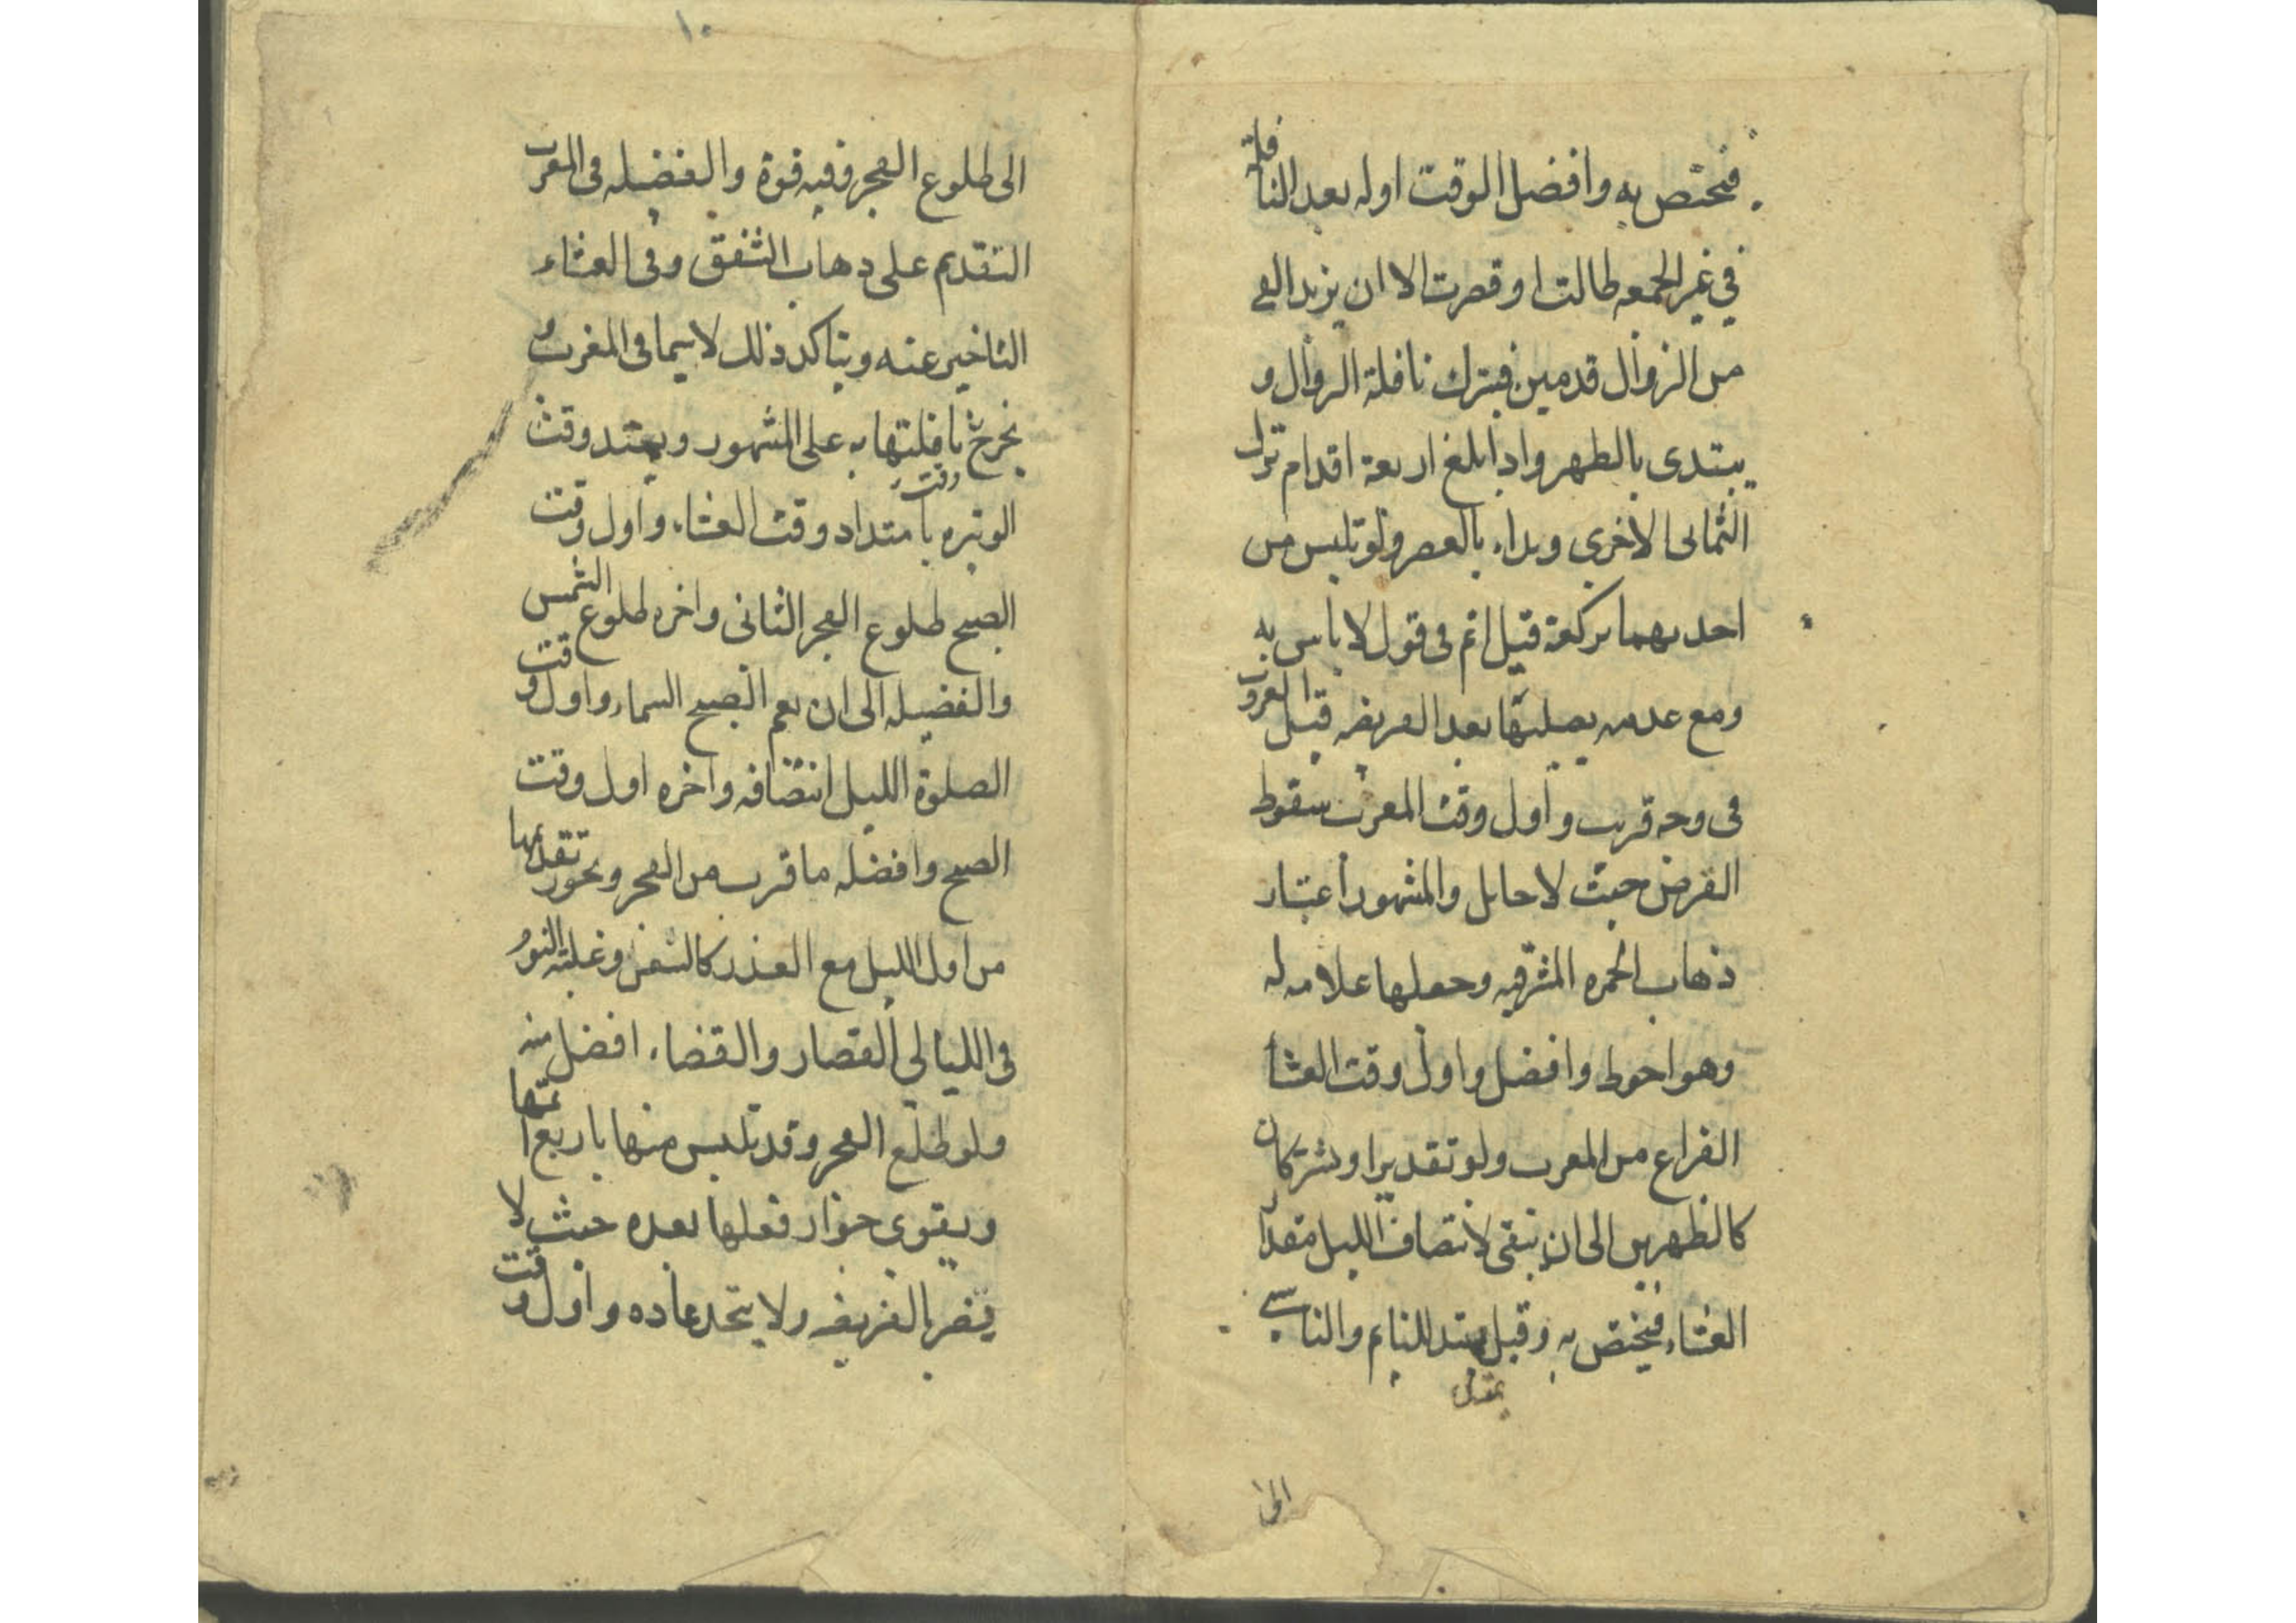 فيختص به وافضل الوقت اوله بعد النافلة
في غير الجمعه طالت او قصرت الا ان يزيد الفي
من الزوال قدمين فيترك نافلة الزوال و
يبتدى بالظهر واذا بلغ اربعة اقدام ترك
الثماني الاخرى وبداء بالعصر ولو تلبس من
احديهما بركعة قيل اتم في قول لا باس به
ومع عدمه يصليها بعد الفريضه قبل الغروب
في وجه قريب واول وقت المغرب سقوط
القرض حيث لا حايل والمشهور اعتبار
ذهاب الحمره المشرقيه وجعلها علامه له
وهو احوط وافضل واول وقت العشا
الفراغ من المغرب ولو تقديرا ويشتركان
كالظهرين الى ان يبقى لانتصاف الليل مقدار
العشاء فيختص به وقيل يمتد للنايم والناسي
الى
١٠
الى طلوع الفجر وفيه قوة والفضيله في المغرب
التقديم على ذهاب الشفق وفي العشاء
التاخير عنه ويتاكد ذلك لاسيما في المغرب و
يخرج نافلتها به على المشهور ويمتد وقت
الوتيره بامتداد وقت العشاء واول وقت
الصبح طلوع الفجر الثانى واخره طلوع الشمس
والفضيله الى ان يعم الصبح السماء واول وقت
الصلوة الليل انتصافه واخره اول وقت
الصبح وافضله ما قرب من الفجر ويجوز تقديمها
من اول الليل مع العذر كالسفر وغلبة النوم
في الليالي القصار والقضاء افضل منه
ولو طلع الفجر وقد تلبس منها باربع اتمها
ويقوى جواز فعلها بعده حيث لا
يضر بالفريضه ولا يتخذ عاده واول وقت